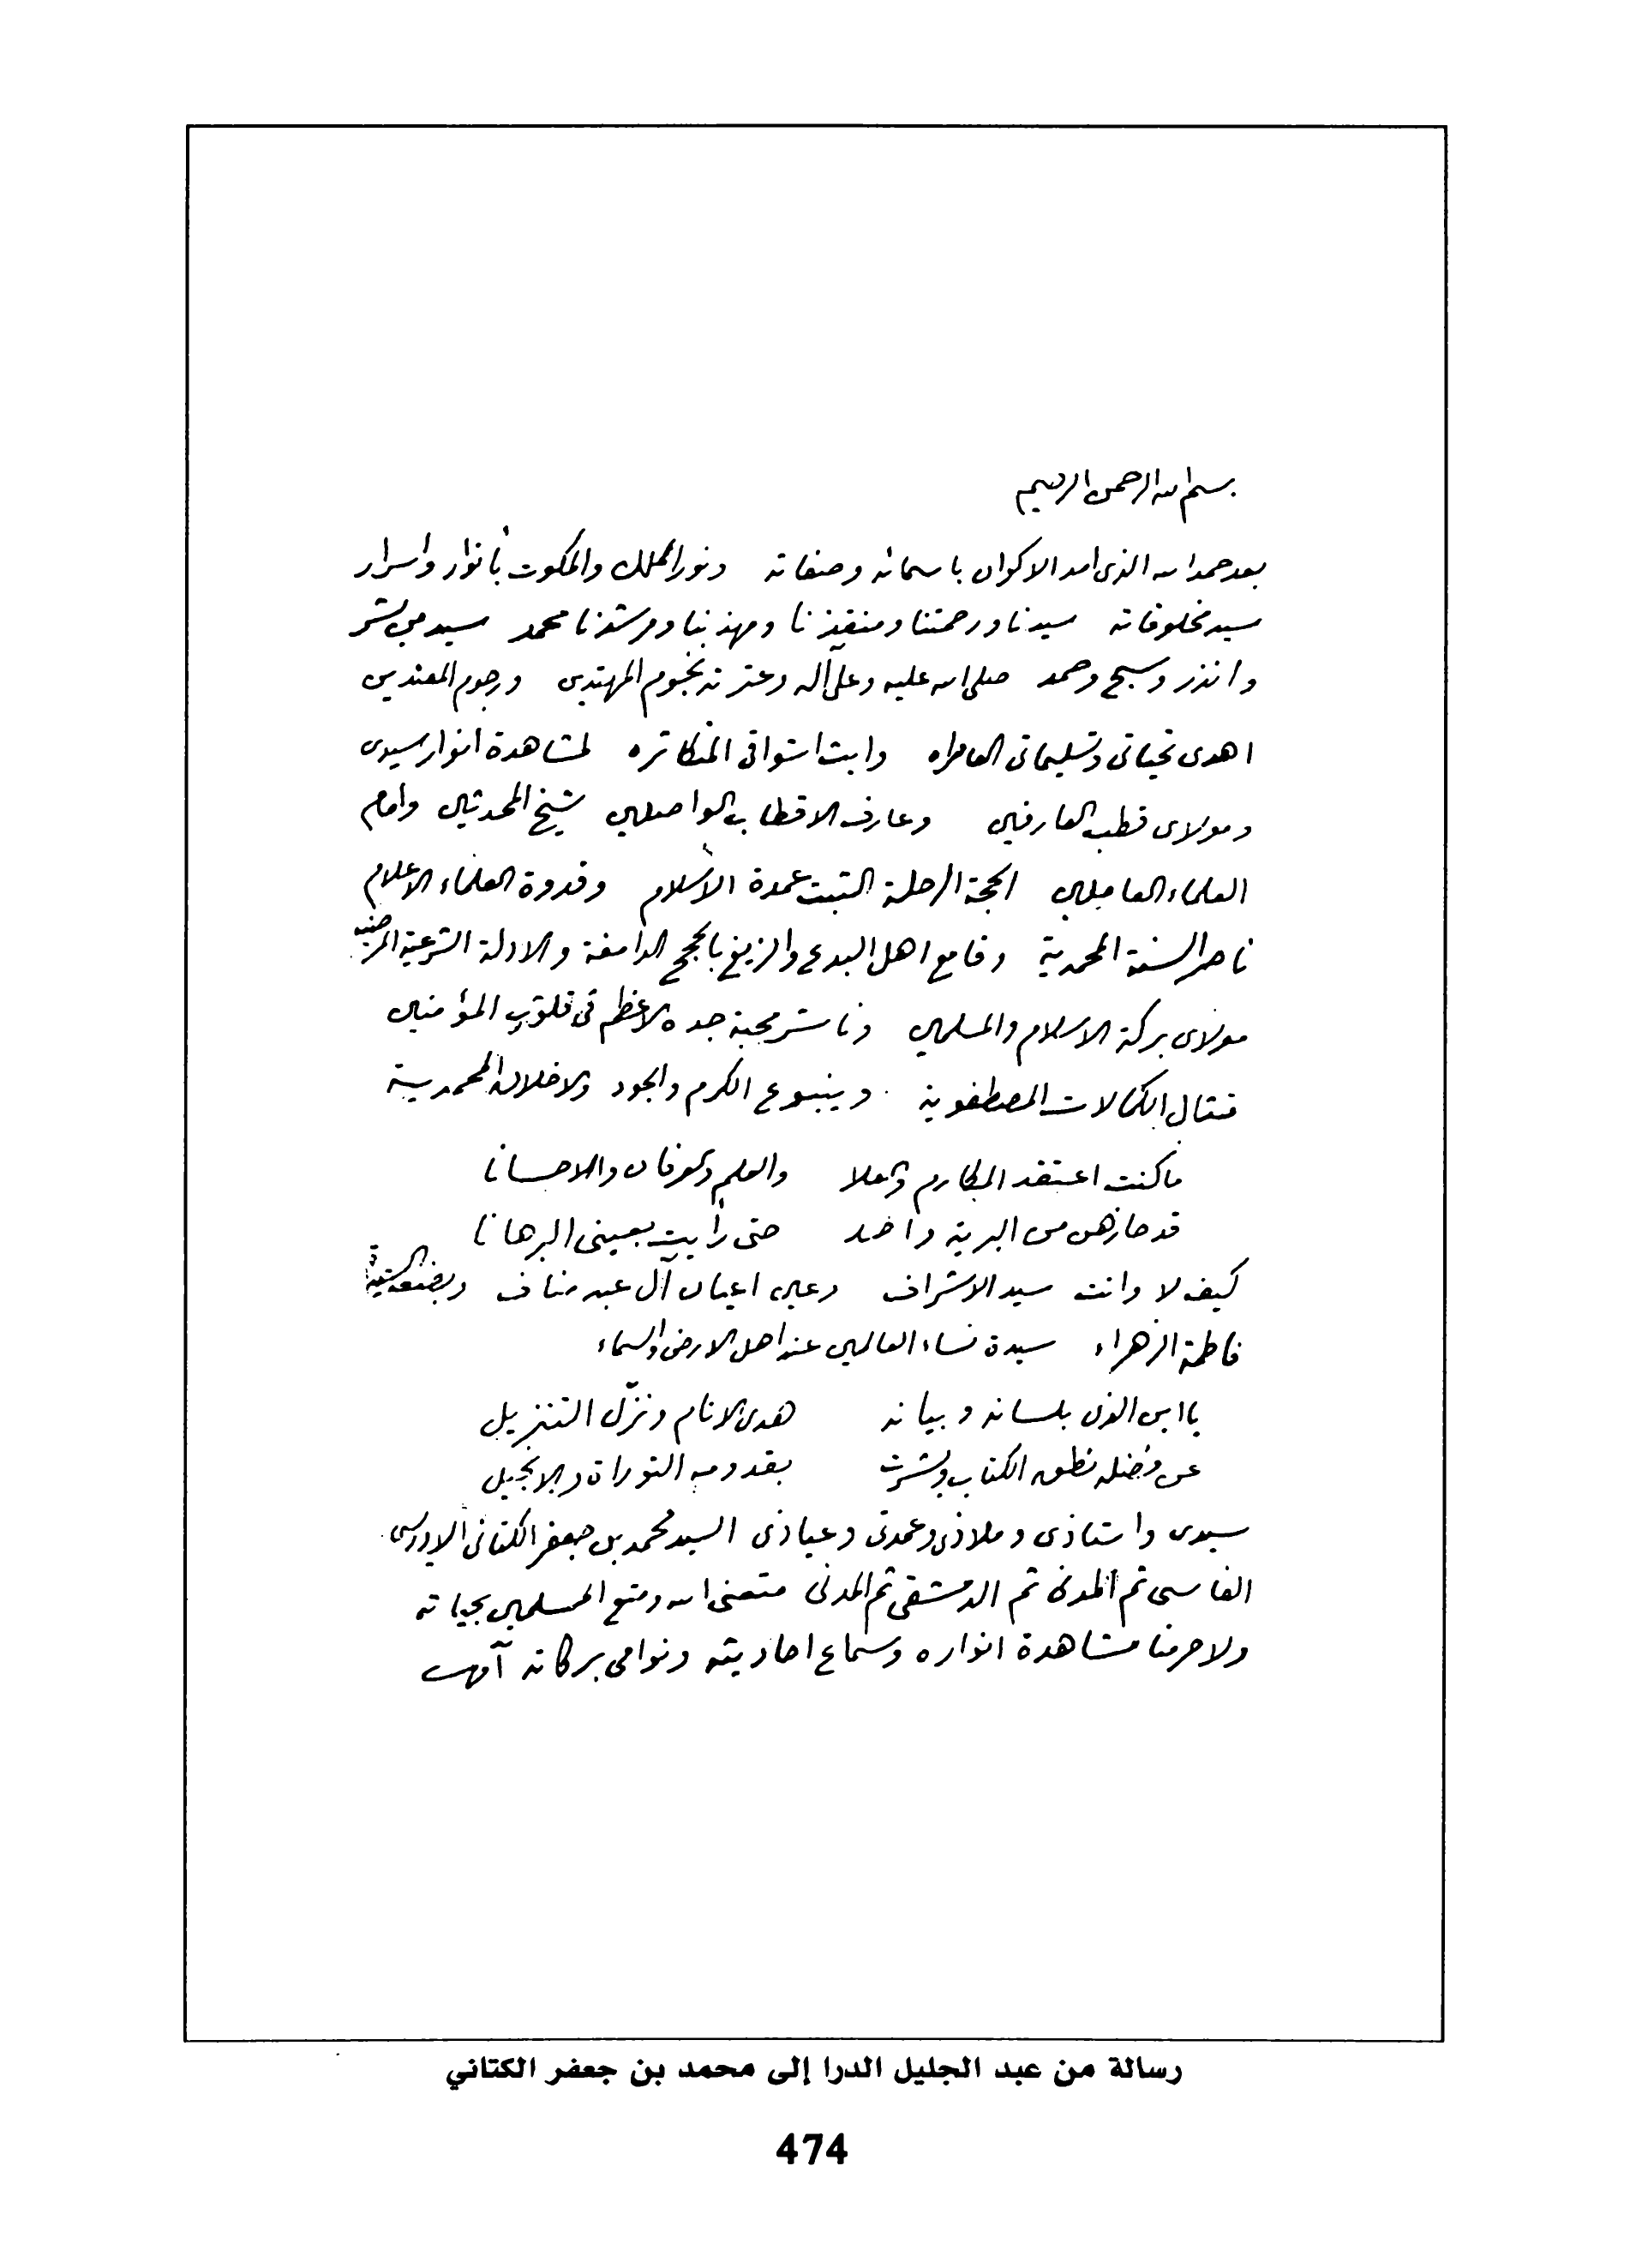 بسم الله الرحمن الرحيم
بعد حمد الله الذى امد الاكوان باسمائه وصفاته ونور الملك والملكوت بأنوار واسرار
سيد مخلوقاته سيدنا ورحمتنا ومنقذنا ومهذبنا ومرشدنا محمد سيد من بشر
وانذر وسبح وحمد صلى الله عليه وعلى آله وعترته نجوم المهتدين ورجوم المعتدين
اهدى تحياتى وتسليماتى العاطره وابث اشواقى المتكاثره لمشاهدة انوار سيدى
ومولاى قطب العارفين وعارف الاقطاب الواصلين شيخ المحدثين وامام
العلماء العاملين الحجة الرحلة الثبت عمدة الأسلام وقدوة العلماء الاعلام
ناصر السنة المحمدية وقامع اهل البدع والزيغ بالحجج الدامغة والادلة الشرعية المرضية
مولاى بركة الاسلام والمسلمين وناشر محبة جده الاعظم فى قلوب المؤمنين
مثال الكمالات المصطفوية وينبوع الكرم والجود والاخلاق المحمدية
ماكنت اعتقد المكارم والعلا والعلم والعرفان والاحسانا
قد حازهن من البرية واحد حتى رأيت بعينى البرهانا
كيف لا وانت سيد الاشراف وعين اعيان آل عبد مناف وبضعة السيدة
فاطمة الزهراء سيدة نساء العالمين عند اهل الارض والسماء
ياابن الذى بلسانه وبيانه هدى الانام ونزّل التنزيل
عن فضله نطق الكتاب وبشرت بقدومه التوراة والانجيل
سيدى واستاذى وملاذى وعمدتى وعياذى السيد محمد بن جعفر الكتانى الادريسى
الفاسى ثم المدنى ثم الدمشقى ثم المدنى متعنى الله ومتع المسلمين بحياته
ولاحرمنا مشاهدة انواره وسماع احاديثه ونوامى بركاته آمين
رسالة من عبد الجليل الدرا إلى محمد بن جعفر الكتاني
474